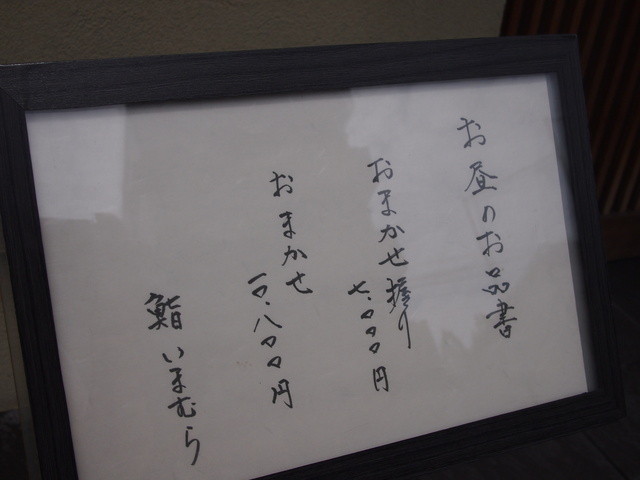 お昼のお品書
おまかせ握り
七.〇〇〇円
おまかせ
一〇.八〇〇円
鮨 いまむら